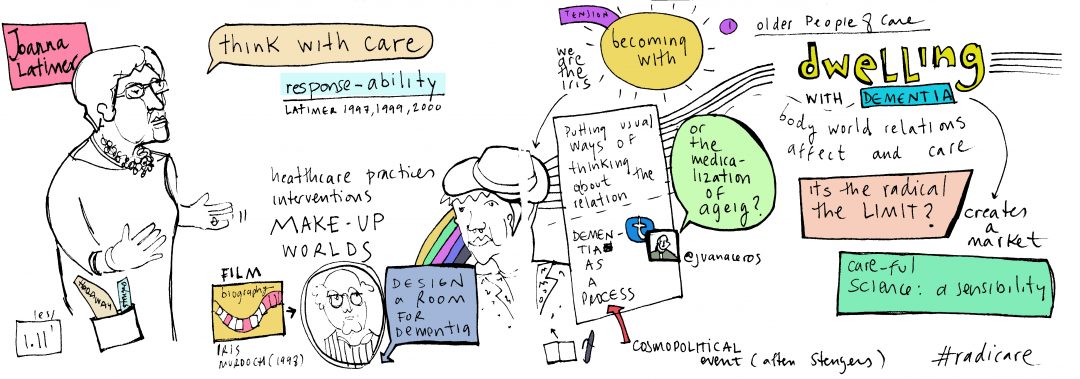 Joanna
Latimer
think with care
response-ability
LATIMER 1997, 1999, 2000
healthcare practices
interventions
MAKE-UP
WORLDS
HARAWAY
FILM
biography
IRIS
MURDOCH (1998)
DESIGN
a ROOM
FOR
Dementia
TENSION
we
are
the
iris
becoming
with
putting usual
ways of
thinking
about the
relation
DEMEN-
TIA
AS
A
PROCESS
or
the
medica-
lization
of
ageig?
@juanaleros
COSMOPOLITICAL
event (after Stengers)
1
older People & Care
dwelling
WITH DEMENTIA
body world relations
affect and care
its the radical
the LIMIT?
creates
a
market
care-ful
Science: a sensibility
#radicare